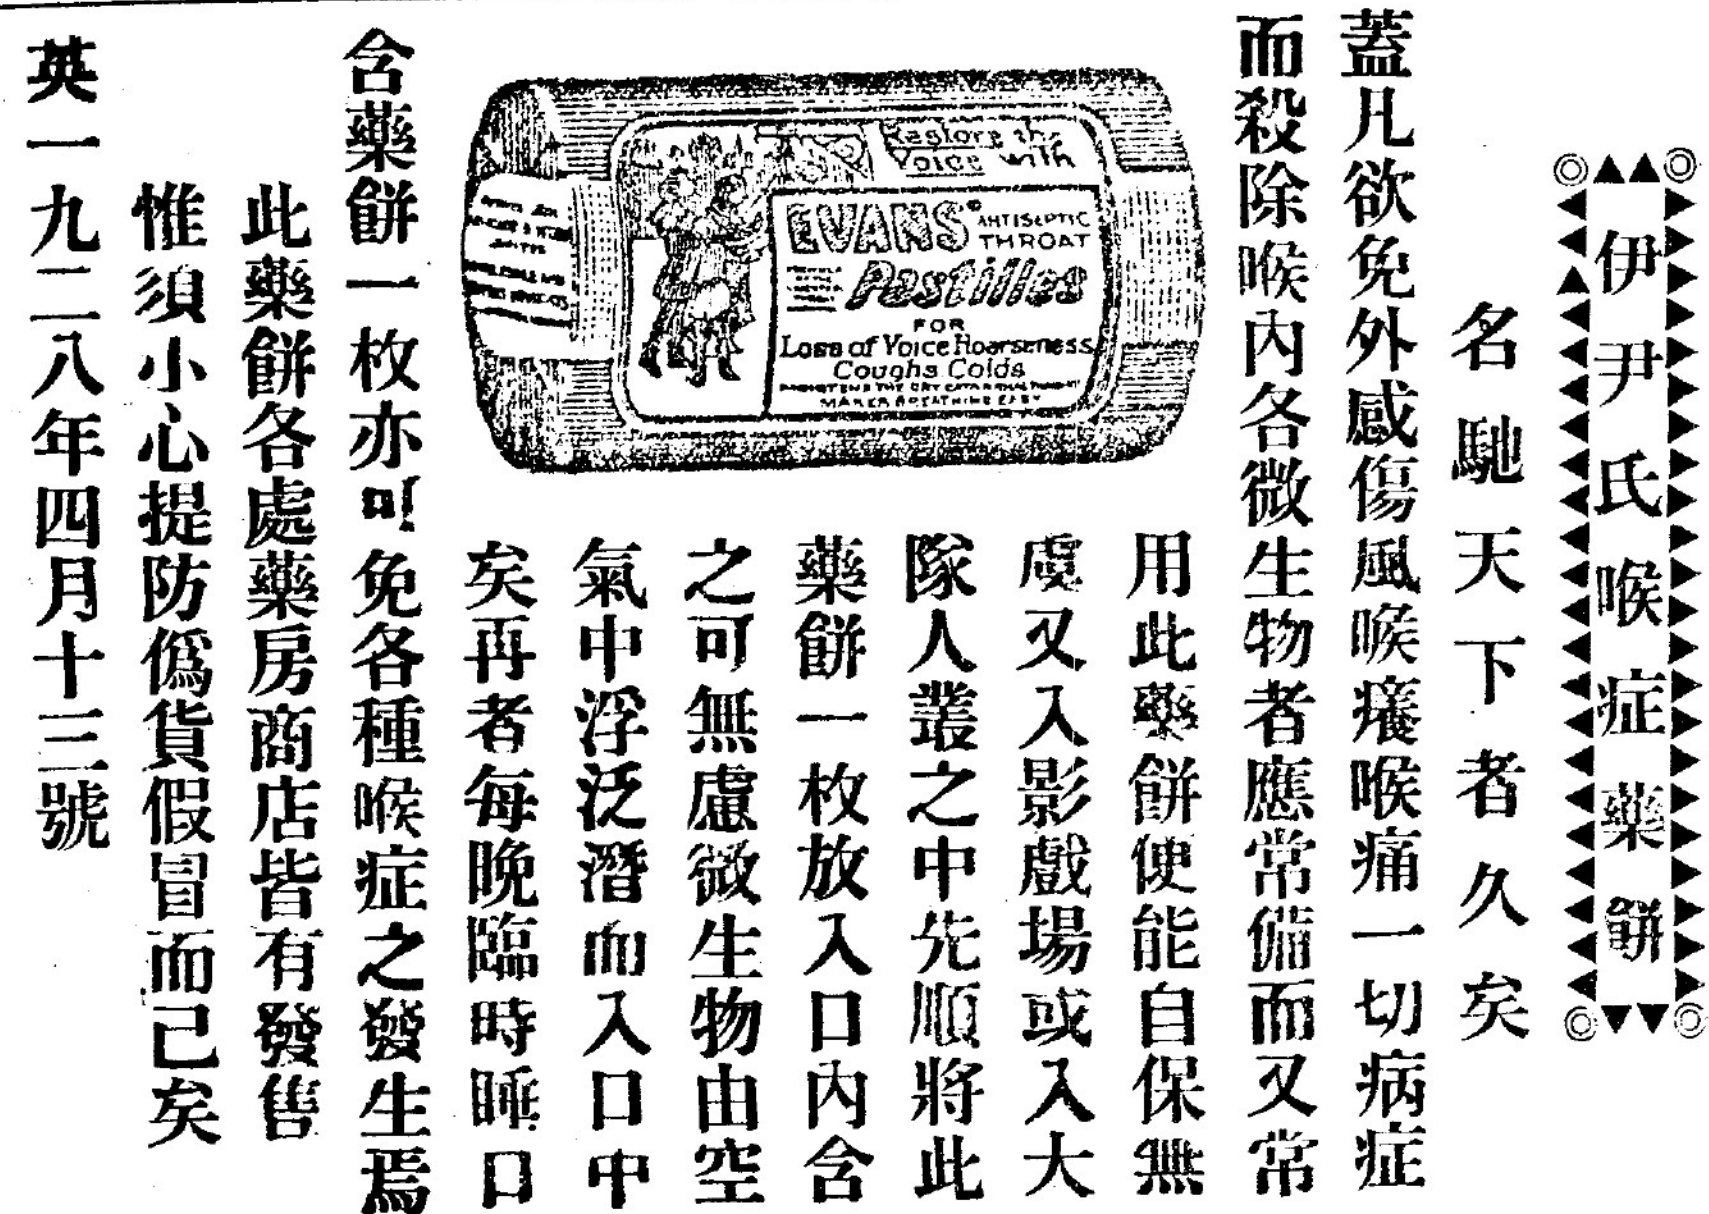 伊尹氏喉症藥餅
名馳天下者久矣
蓋凡欲免外感傷風喉癢喉痛一切病症
而殺除喉內各微生物者應常備而又常
用此藥餅便能自保無
虞又入影戲場或入大
隊人叢之中先順將此
藥餅一枚放入口內含
之可無慮微生物由空
氣中浮泛潛而入口中
矣再者每晚臨時睡口
含藥餅一枚亦可免各種喉症之發生焉
此藥餅各處藥房商店皆有發售
惟須小心提防僞貨假冒而己矣
英一九二八年四月十三號
Restore the
Voice with
EVANS' ANTISEPTIC
THROAT
Pastilles
FOR
Loss of Voice Hoarseness
Coughs Colds
MAKES BREATHING EASY